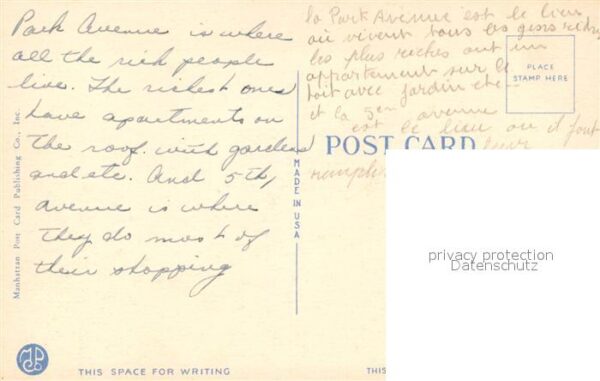 Park Avenue is where
all the rich people
live. The richest ones
have apartments on
the roof. with gardens
and etc. And 5th,
avenue is where
they do most of
their shopping
la Park Avenue est le lieu
où vivent tous les gens riches
les plus riches ont un
appartement sur le
toit avec jardin etc
et la 5em avenue
est le lieu ou il font
PLACE
STAMP HERE
POST CARD
Manhattan Post Card Publishing Co., Inc.
MADE IN USA
privacy protection
Datenschutz
THIS SPACE FOR WRITING
THIS